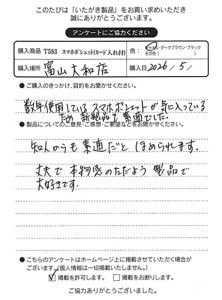 このたびは「いたがき製品」をお買い求めいただき
誠にありがとうございます。
アンケートにご協力ください
購入商品 T583 スマホポシェット(カード入れ付) 色: ・ダークブラウン・ブラック
その他(
購入場所 富山大和店 購入日 2026/5/
●ご購入のきっかけ、目的をお聞かせください。
数年使用しているスマホポシェットが気に入っている
ため 新製品も 購入でした。
●製品についてのご意見・ご感想・ご要望などをお聞かせください。
知人からも素適だと ほめられます。
丈夫で 本物志 のたよう 製品で
大好きです。
●こちらのアンケートはホームページ上に掲載させていただく場合が
ございます。(個人情報は一切掲載いたしません。)
☑掲載を許可します。 □掲載をお断りします。
ご協力ありがとうございました。